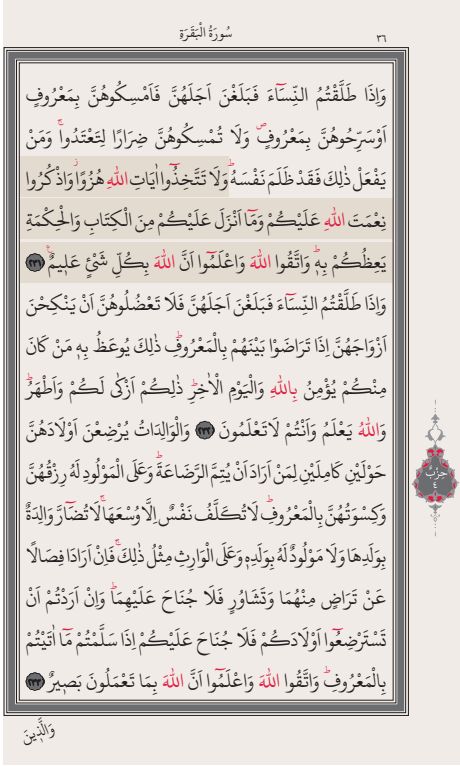 سُورَةُ الْبَقَرَةِ
٣٦
وَاِذَا طَلَّقْتُمُ النِّسَٓاءَ فَبَلَغْنَ اَجَلَهُنَّ فَاَمْسِكُوهُنَّ بِمَعْرُوفٍ
اَوْسَرِّحُوهُنَّ بِمَعْرُوفٍۖ وَلَا تُمْسِكُوهُنَّ ضِرَارًا لِتَعْتَدُواۚ وَمَنْ
يَفْعَلْ ذٰلِكَ فَقَدْ ظَلَمَ نَفْسَهُۜ وَلَا تَتَّخِذُٓوا اٰيَاتِ اللّٰهِ هُزُوًاۘ وَاذْكُرُوا
نِعْمَتَ اللّٰهِ عَلَيْكُمْ وَمَٓا اَنْزَلَ عَلَيْكُمْ مِنَ الْكِتَابِ وَالْحِكْمَةِ
يَعِظُكُمْ بِهٖۜ وَاتَّقُوا اللّٰهَ وَاعْلَمُٓوا اَنَّ اللّٰهَ بِكُلِّ شَيْءٍ عَلٖيمٌ۟ ﴿٢٣١﴾
وَاِذَا طَلَّقْتُمُ النِّسَٓاءَ فَبَلَغْنَ اَجَلَهُنَّ فَلَا تَعْضُلُوهُنَّ اَنْ يَنْكِحْنَ
اَزْوَاجَهُنَّ اِذَا تَرَاضَوْا بَيْنَهُمْ بِالْمَعْرُوفِۜ ذٰلِكَ يُوعَظُ بِهٖ مَنْ كَانَ
مِنْكُمْ يُؤْمِنُ بِاللّٰهِ وَالْيَوْمِ الْاٰخِرِۜ ذٰلِكُمْ اَزْكٰى لَكُمْ وَاَطْهَرُۜ
وَاللّٰهُ يَعْلَمُ وَاَنْتُمْ لَا تَعْلَمُونَ ﴿٢٣٢﴾ وَالْوَالِدَاتُ يُرْضِعْنَ اَوْلَادَهُنَّ
حَوْلَيْنِ كَامِلَيْنِ لِمَنْ اَرَادَ اَنْ يُتِمَّ الرَّضَاعَةَۜ وَعَلَى الْمَوْلُودِ لَهُ رِزْقُهُنَّ
وَكِسْوَتُهُنَّ بِالْمَعْرُوفِۜ لَا تُكَلَّفُ نَفْسٌ اِلَّا وُسْعَهَاۚ لَا تُضَٓارَّ وَالِدَةٌ
بِوَلَدِهَا وَلَا مَوْلُودٌ لَهُ بِوَلَدِهٖ وَعَلَى الْوَارِثِ مِثْلُ ذٰلِكَۚ فَاِنْ اَرَادَا فِصَالًا
عَنْ تَرَاضٍ مِنْهُمَا وَتَشَاوُرٍ فَلَا جُنَاحَ عَلَيْهِمَاۜ وَاِنْ اَرَدْتُمْ اَنْ
تَسْتَرْضِعُٓوا اَوْلَادَكُمْ فَلَا جُنَاحَ عَلَيْكُمْ اِذَا سَلَّمْتُمْ مَٓا اٰتَيْتُمْ
بِالْمَعْرُوفِۜ وَاتَّقُوا اللّٰهَ وَاعْلَمُٓوا اَنَّ اللّٰهَ بِمَا تَعْمَلُونَ بَصٖيرٌ ﴿٢٣٣﴾
حِزْبٌ
٤
وَالَّذٖينَ